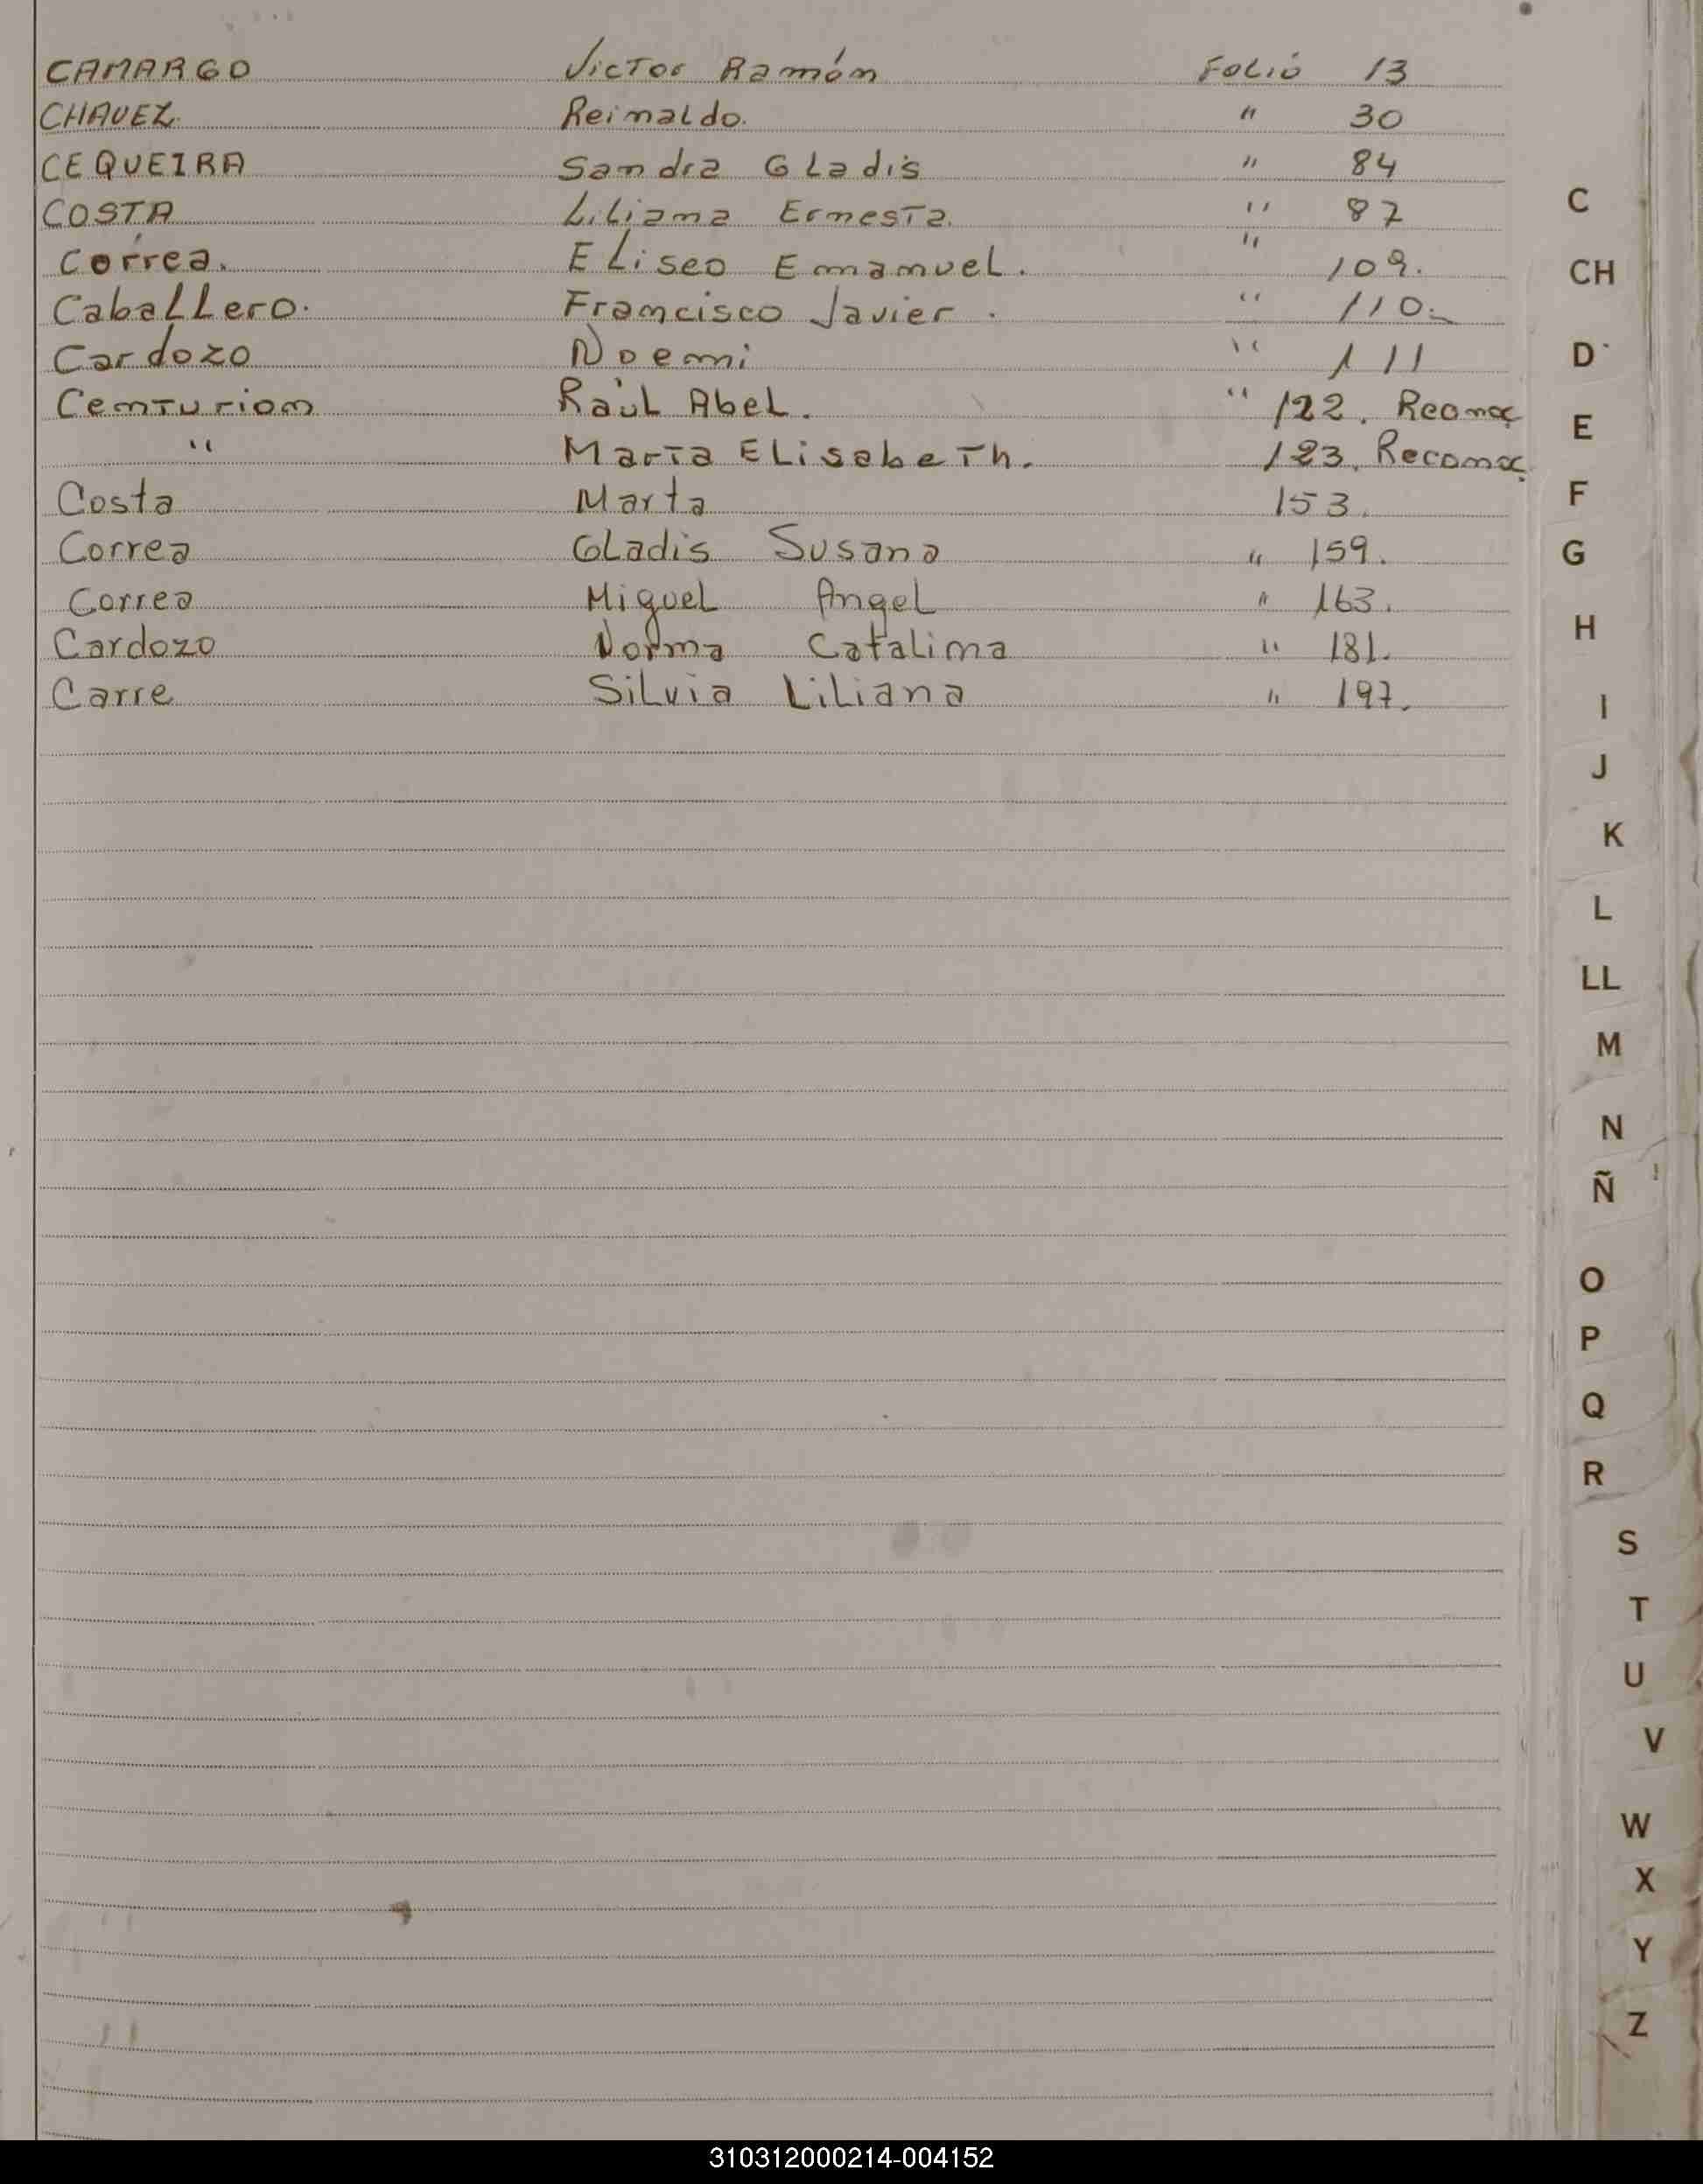 CAMARGO Victor Ramón Folio 13
CHAVEZ. Reinaldo. " 30
CEQUEIRA Sandra Gladis " 84
COSTA Liliana Ernesta. " 87
Correa. Eliseo Emanuel. " 109.
Caballero. Francisco Javier. " 110.
Cardozo Noemi " 111
Centurion Raúl Abel. " 122. Reonoc
" Marta Elisabeth. 123. Reconoc.
Costa Marta 153.
Correa Gladis Susana " 159.
Correa Miguel Angel " 163.
Cardozo Norma Catalina " 181.
Carre Silvia Liliana " 197.
C
CH
D
E
F
G
H
I
J
K
L
LL
M
N
Ñ
O
P
Q
R
S
T
U
V
W
X
Y
Z
310312000214-004152